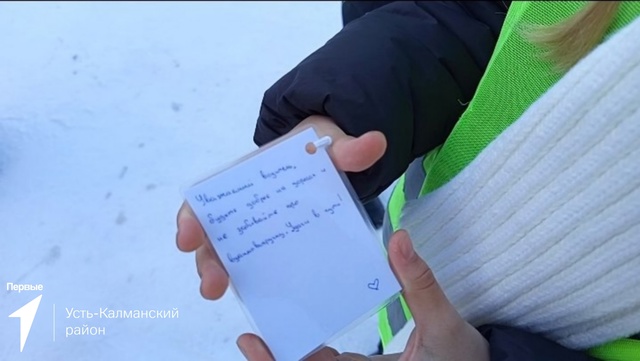 Уважаемый водитель,
будьте добрее на дороге и
не забывайте про
взаимовыручку. Удачи в пути!
Первые
Усть-Калманский
район